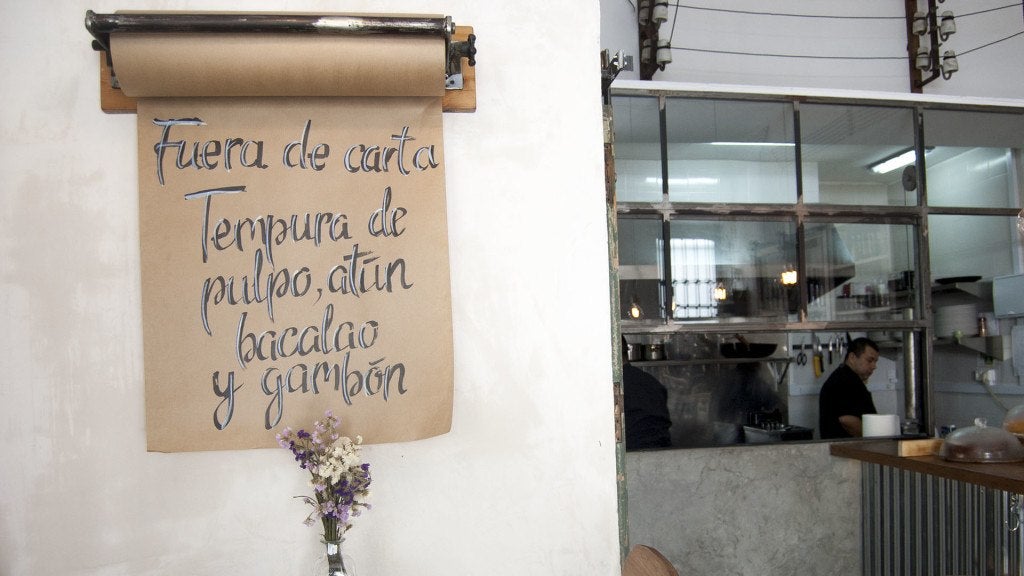 Fuera de carta
Tempura de
pulpo, atún
bacalao
y gambón